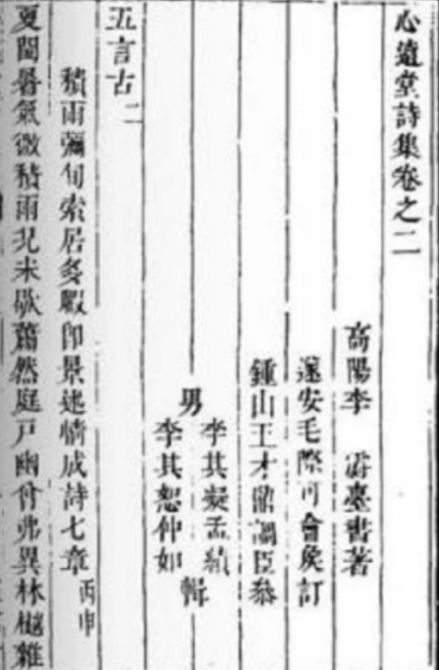 心遠堂詩集卷之二
高陽李 霨臺書著
遂安毛際可會侯訂
鍾山王才鼎調臣叅
男
李其凝孟績
李其恕仲如
輯
五言古二
積雨彌旬索居多暇即景述情成詩七章丙申
夏閏暑氣微積雨北未歇蕭然庭戸幽付弗異林樾雜